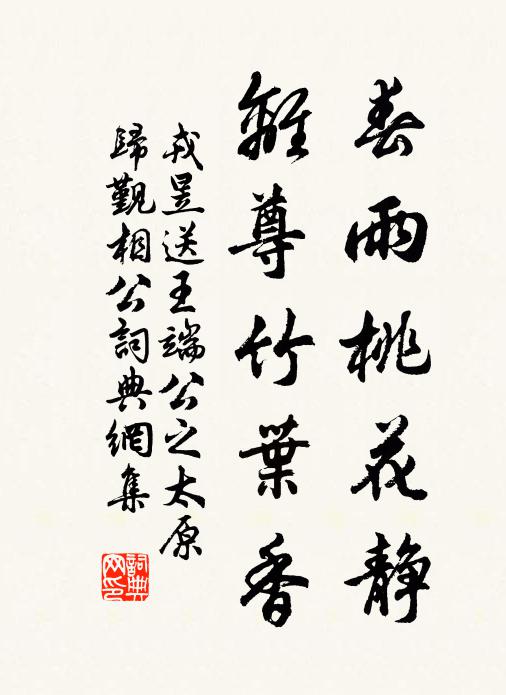 春雨桃花静
離尊竹葉香
戎昱送王端公之太原
歸覲相公詞典網集
詞典網印